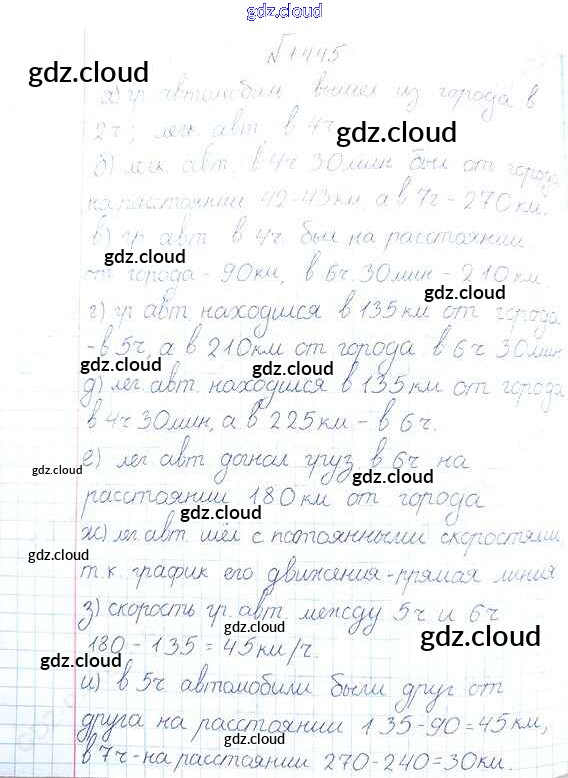 gdz.cloud
№1445
gdz.cloud
а) гр автомобиль вышел из города в
2ч; легк авт. в 4ч.
gdz.cloud
б) легк. авт. в 4ч 30мин был от города
gdz.cloud
на расстоянии 42-43км, а в 7ч - 270км.
в) гр авт в 4ч. был на расстоянии
gdz.cloud
от города - 90км, в 6ч. 30мин - 210км.
gdz.cloud
г) гр авт. находился в 135км от города
- в 5ч, а в 210км от города в 6ч 30мин
gdz.cloud
gdz.cloud
д) лег. авт. находился в 135км от города
в 4ч 30мин, а в 225км - в 6ч.
е) лег авт догнал груз. в 6ч на
gdz.cloud
gdz.cloud
расстоянии 180км от города
gdz.cloud
ж) лег. авт шёл с постоянными скоростями
gdz.cloud
т.к. график его движения - прямая линия
з) скорость гр. авт. между 5ч и 6ч
gdz.cloud
gdz.cloud
180 - 135 = 45км/ч.
gdz.cloud
и) в 5ч автомобили были друг от
друга на расстоянии 135-90=45км,
gdz.cloud
в 7ч - на расстоянии 270-240=30км.